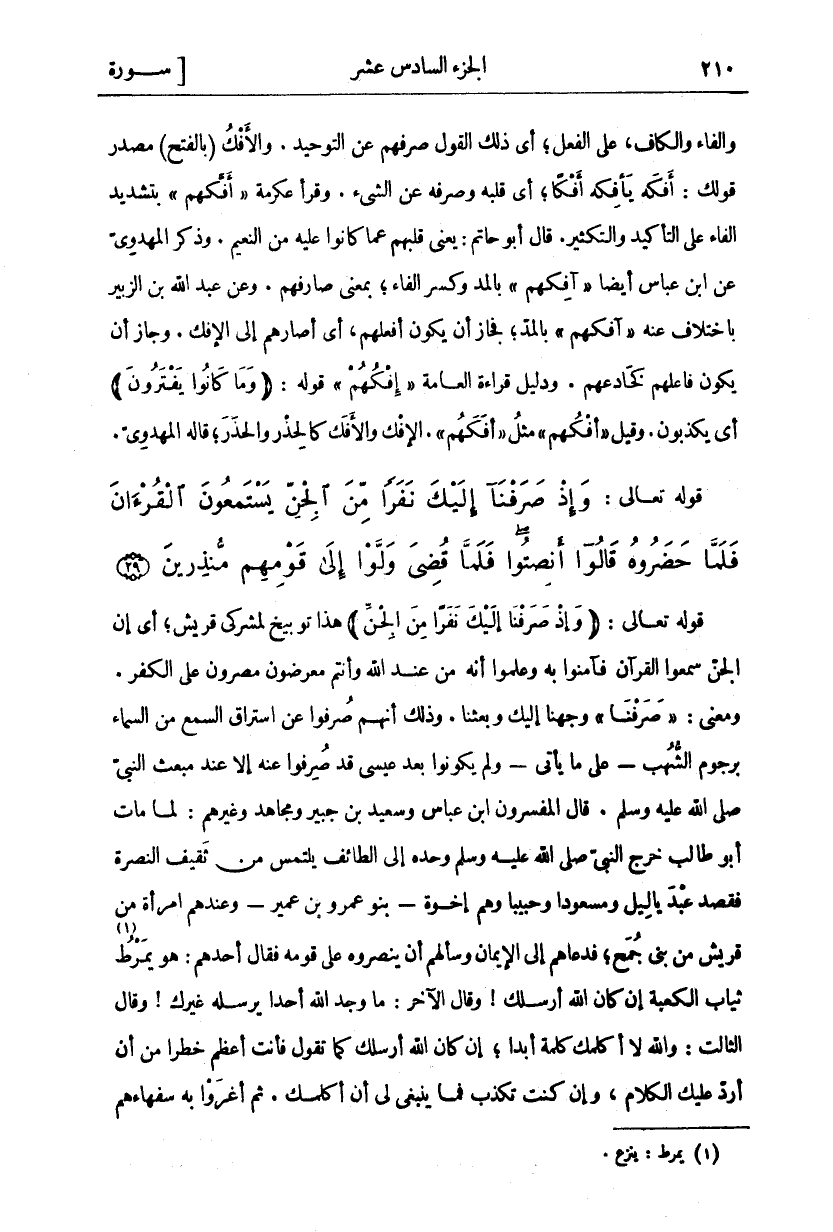 ٢١٠ الجزء السادس عشر [ ســورة
والفاء والكاف، على الفعل؛ أى ذلك القول صرفهم عن التوحيد . والأَفْكُ (بالفتح) مصدر
قولك : أَفَكَه يَأفِكه أَفْكًا؛ أى قلبه وصرفه عن الشىء . وقرأ عكرمة « أَفَّكهم » بتشديد
الفاء على التأكيد والتكثير. قال أبو حاتم : يعنى قلبهم عما كانوا عليه من النعيم . وذكر المهدوىّ
عن ابن عباس أيضا « آفِكهم » بالمد وكسر الفاء ؛ بمعنى صارفهم . وعن عبد الله بن الزبير
باختلاف عنه « آفكهم » بالمدّ؛ فجاز أن يكون أفعلهم، أى أصارهم إلى الإفك . وجاز أن
يكون فاعلهم كخادعهم . ودليل قراءة العـامة « إِفْكُهُمْ » قوله : ﴿ وَمَا كَانُوا يَفْتَرُونَ ﴾
أى يكذبون . وقيل «أفْكُهم» مثلُ «أفَكَهُم» . الإفْك والأَفَك كالحِذْر والحَذَر؛ قاله المهدوىّ .
قوله تعـالى : وَإِذْ صَرَفْنَآ إِلَيْكَ نَفَرًا مِّنَ ٱلْجِنِّ يَسْتَمِعُونَ ٱلْقُرْءَانَ
فَلَمَّا حَضَرُوهُ قَالُوٓا أَنصِتُوا۟ۖ فَلَمَّا قُضِىَ وَلَّوْا إِلَىٰ قَوْمِهِم مُّنذِرِينَ ﴿٢٩﴾
قوله تعـالى : ﴿ وَإِذْ صَرَفْنَا إِلَيْكَ نَفَرًا مِنَ الْجِنِّ ﴾ هذا توبيخ لمشركى قريش؛ أى إن
الجنّ سمعوا القرآن فآمنوا به وعلموا أنه من عنـد الله وأنتم معرضون مصرون على الكفر .
ومعنى : « صَرَفْنَـا » وجهنا إليك وبعثنا . وذلك أنهـم صُرفوا عن استراق السمع من السماء
برجوم الشُّهُب — على ما يأتى — ولم يكونوا بعد عيسى قد صُرِفوا عنه إلا عند مبعث النبىّ
صلى الله عليه وسلم . قال المفسرون ابن عباس وسعيد بن جبير ومجاهد وغيرهم : لمـا مات
أبو طالب خرج النبىّ صلى الله عليـه وسلم وحده إلى الطائف يلتمس مـن ثَقيف النصرة
فقصد عَبْدَ ياليل ومسعودا وحبيبا وهم إخـوة — بنو عمرو بن عمير — وعندهم امرأة من
قريش من بنى جُمَح؛ فدعاهم إلى الإيمان وسألهم أن ينصروه على قومه فقال أحدهم : هو يَمْرُط (١)
ثياب الكعبة إن كان الله أرسـلك ! وقال الآخر : ما وجد الله أحدا يرسـله غيرك ! وقال
الثالث : والله لا أكلمك كلمة أبدا ؛ إن كان الله أرسلك كما تقول فأنت أعظم خطرا من أن
أردّ عليك الكلام ، وإن كنت تكذب فمـا ينبغى لى أن أكلمـك . ثم أغرَوْا به سفهاءهم
(١) يمرط : ينزع .